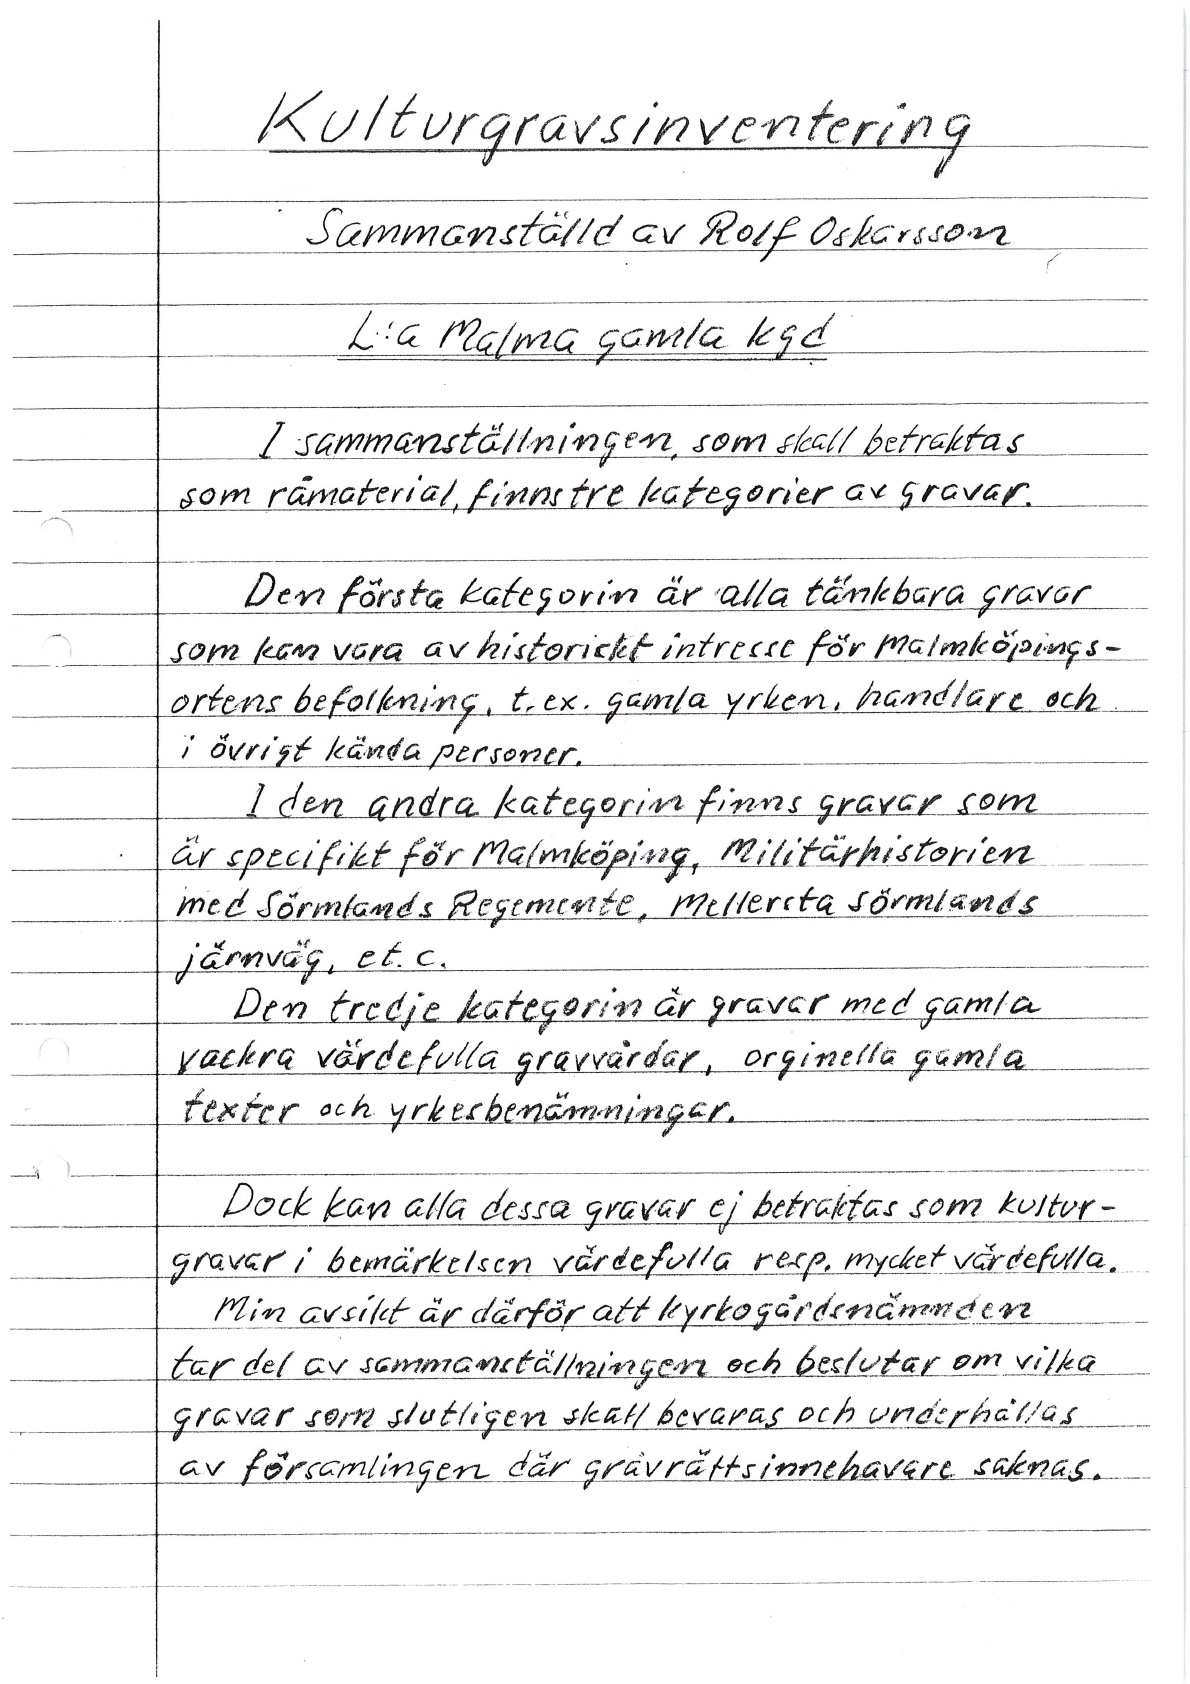 Kulturgravsinventering
Sammanställd av Rolf Oskarsson
L:a Malma gamla kgd
I sammanställningen, som skall betraktas
som råmaterial, finns tre kategorier av gravar.
Den första kategorin är alla tänkbara gravar
som kan vara av historiskt intresse för Malmköpings-
ortens befolkning, t.ex. gamla yrken, handlare och
i övrigt kända personer.
I den andra kategorin finns gravar som
är specifikt för Malmköping, Militärhistorien
med Sörmlands Regemente, Mellersta Sörmlands
järnväg, et.c.
Den tredje kategorin är gravar med gamla
vackra värdefulla gravvårdar, orginella gamla
texter och yrkesbenämningar.
Dock kan alla dessa gravar ej betraktas som kultur-
gravar i bemärkelsen värdefulla resp. mycket värdefulla.
Min avsikt är därför att kyrkogårdsnämnden
tar del av sammanställningen och beslutar om vilka
gravar som slutligen skall bevaras och underhållas
av församlingen där gravrättsinnehavare saknas.